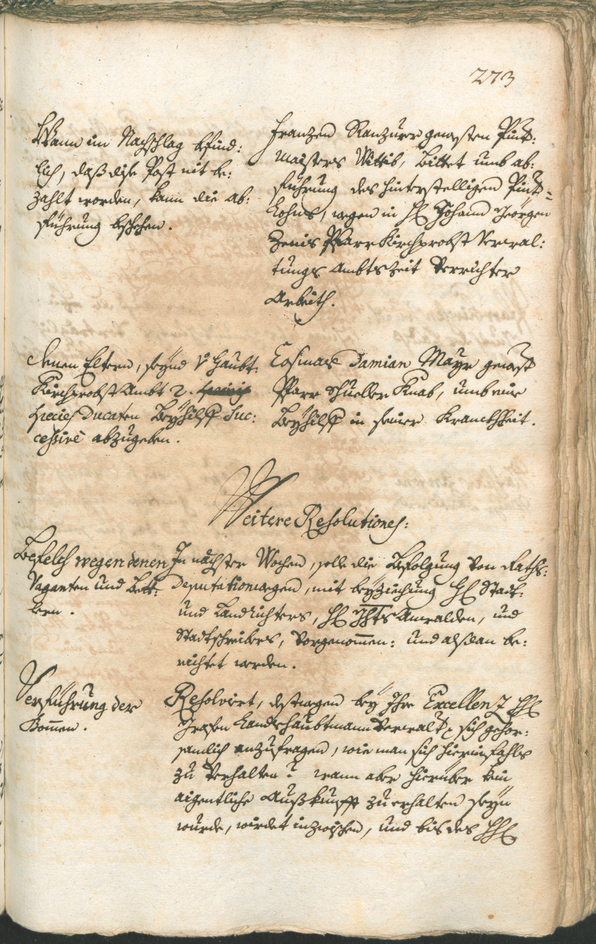 273
Wann im Nachschlag befind:
lich, daß dise Post nit be:
zahlt worden, kann die ab:
fführung beschehen.
Franzen Ranzurr gewesten Pint:
maisters Wittib, Bittet umb ab:
fführung des hinterstelligen Pint:
Lohns, wegen in H: Johann Jeörgen
Zenis PfarrKirchprobst Verwal:
tungs Ambts Zeit Verrichter
Arbeith.
denen Eltern, seynd Vom Haubt
Kirchprobst Ambt 2.
Species Ducaten Beyhilff Suc:
cessivè abzugeben.
Cosmas Damian Mayr gewest
Pfarr Schueller Knab, umb eine
Beyhilff in seiner Kranckheit.
Weitere Resolutiones:
Befelch wegen denen
Vaganten und Bett:
lern.
In nächster Wochen, solle die Befolgung von Raths:
Deputationwegen, mit beyziehung H: Statt:
und Landrichters, H: Anwalden, und
Stadtschreibers, vorgenommen: und alßdan be:
richtet werden.
Verführung der
Bomen.
Resolvirt, deswegen bey Ihro Excellenz H:
Grafen Landtshaubtmann Verwalt: sich gehor:
samlich anzufragen, wie man sich hierinfahls
zu Verhalten? wann aber hierüber kein
aigentliche Außkunfft zu erhalten seyn
wurde, wirdet inzwischen, und bis des H: